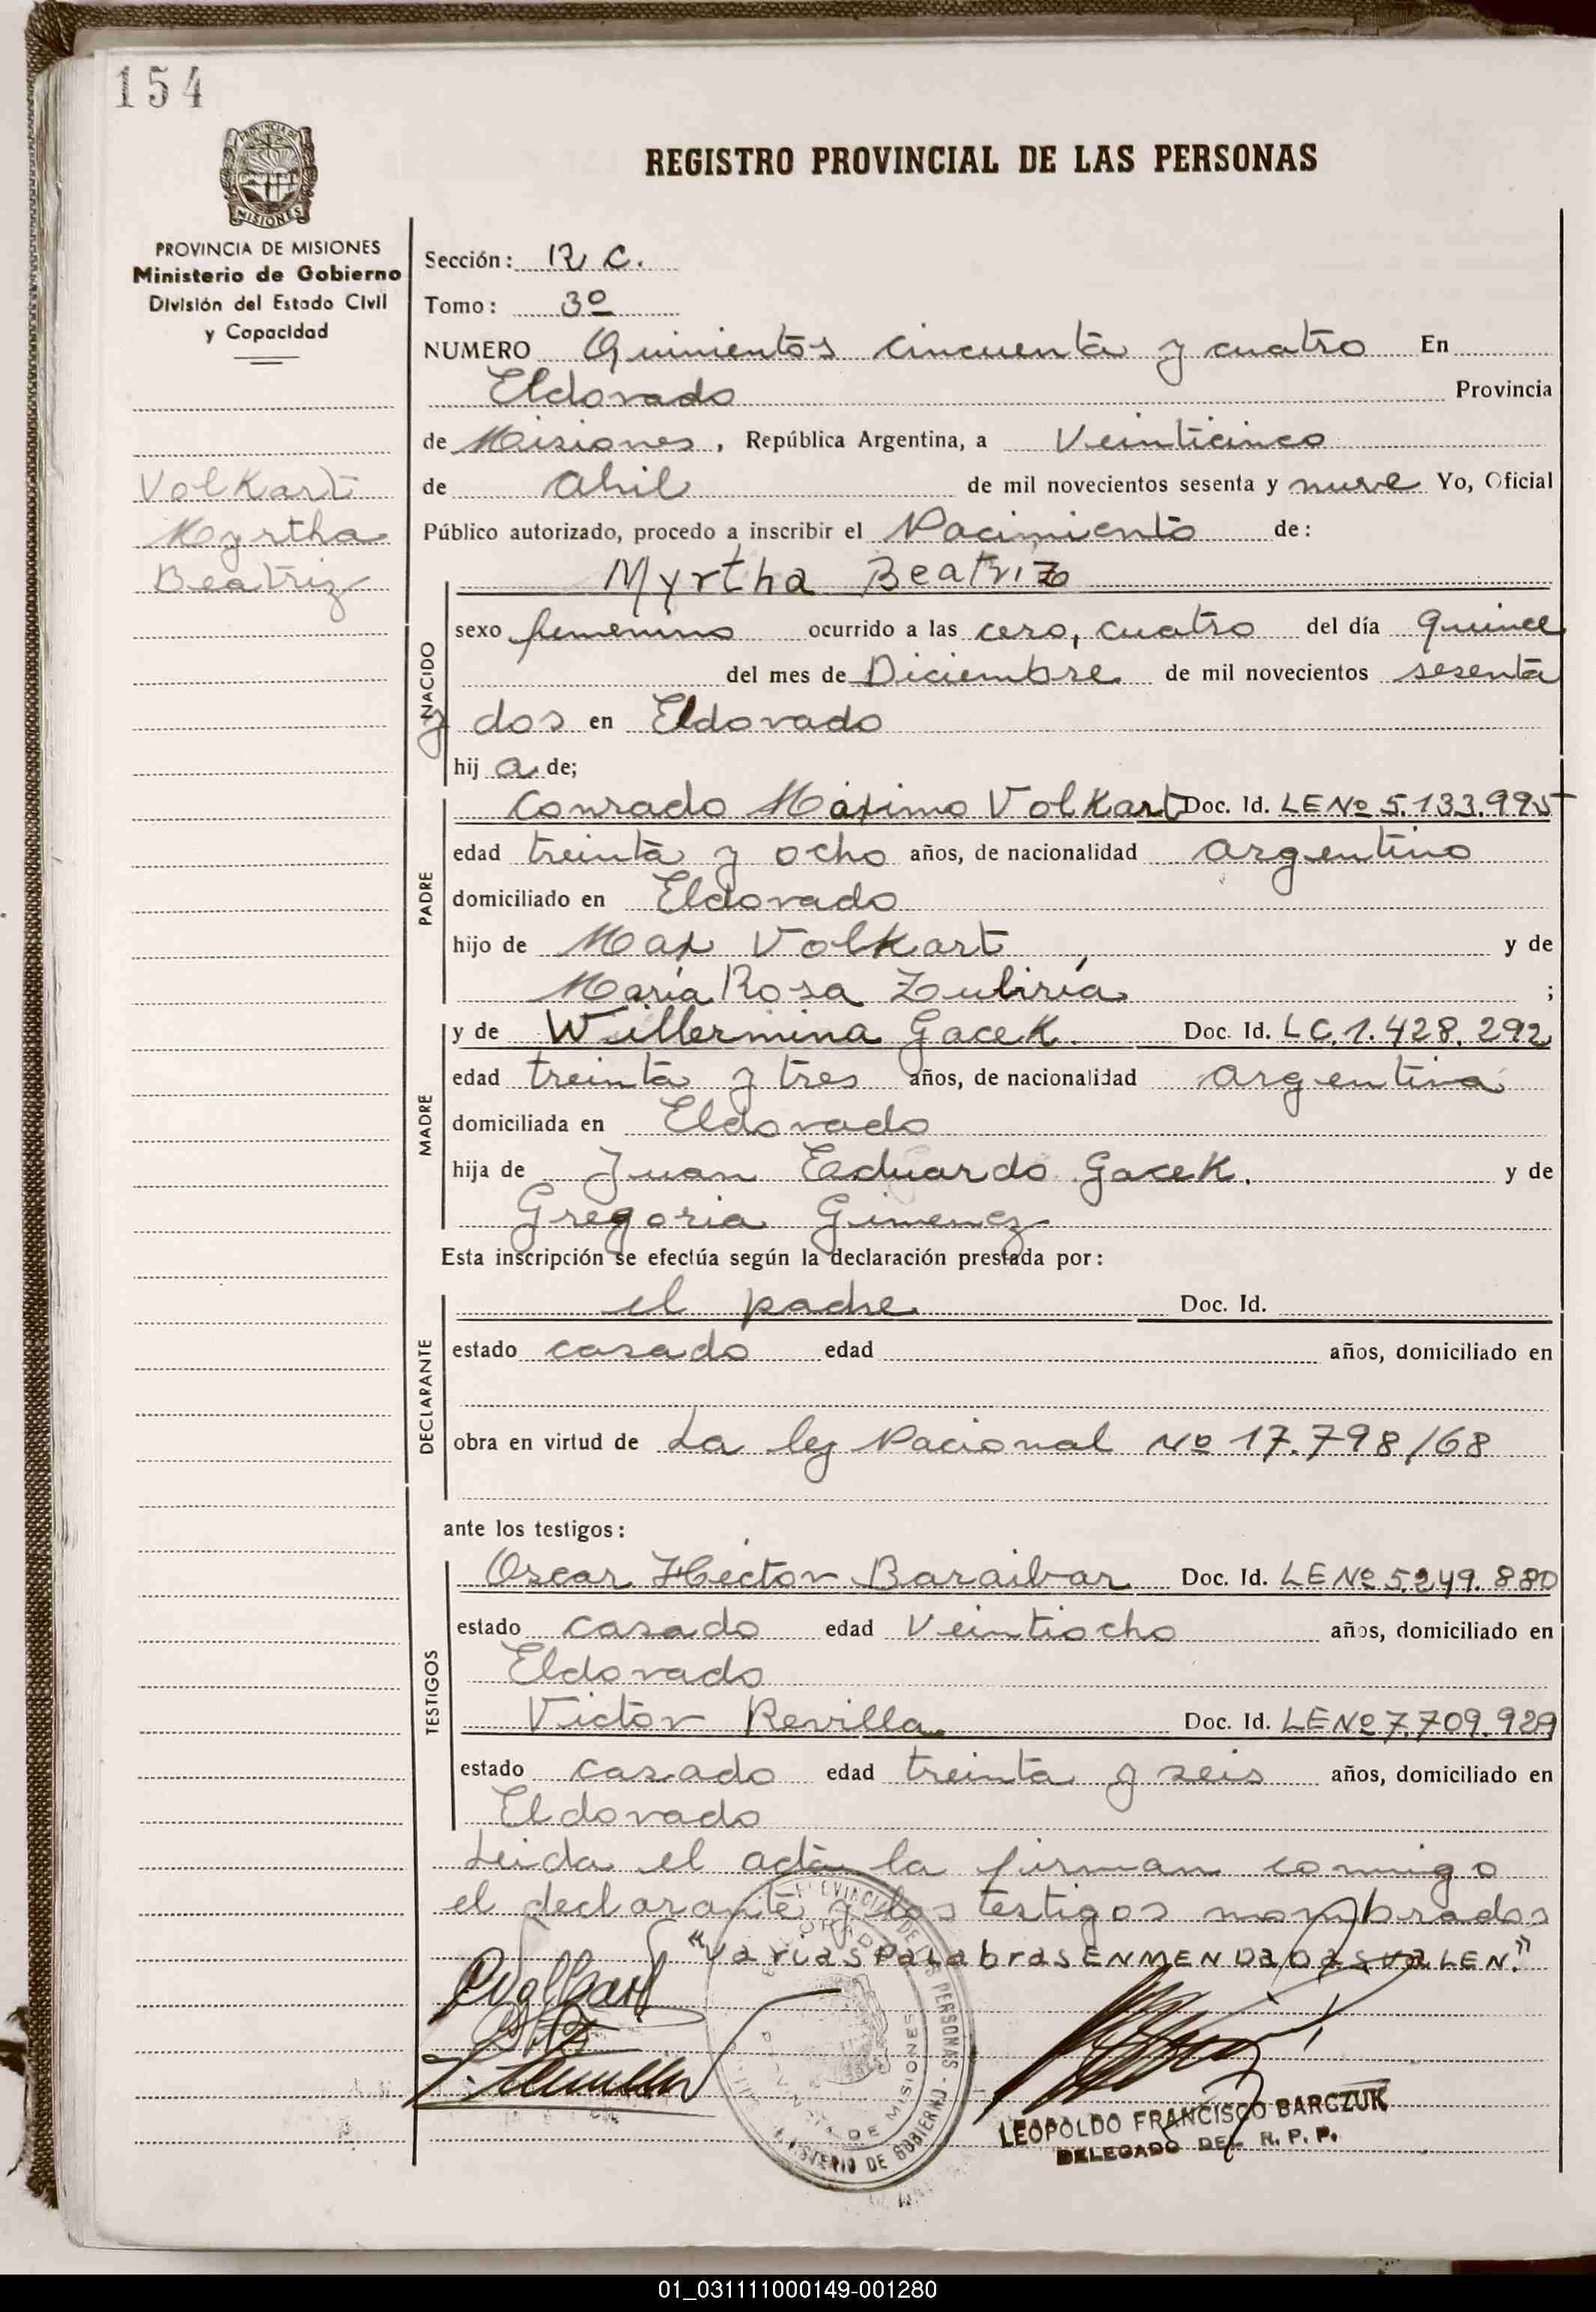 154
PROVINCIA DE
MISIONES
REGISTRO PROVINCIAL DE LAS PERSONAS
PROVINCIA DE MISIONES
Ministerio de Gobierno
División del Estado Civil
y Capacidad
Volkart
Myrtha
Beatriz
Sección: R C.
Tomo: 3º
NUMERO Quinientos cincuenta y cuatro En
Eldorado Provincia
de Misiones, República Argentina, a Veinticinco
de Abril de mil novecientos sesenta y nueve Yo, Oficial
Público autorizado, procedo a inscribir el Nacimiento de:
Myrtha Beatriz
NACIDO
sexo femenino ocurrido a las cero, cuatro del día quince
del mes de Diciembre de mil novecientos sesenta
y dos en Eldorado
hij a de;
PADRE
Conrado Máximo Volkart Doc. Id. LE Nº 5.133.995
edad treinta y ocho años, de nacionalidad argentino
domiciliado en Eldorado
hijo de Max Volkart y de
María Rosa Zubiría ;
MADRE
y de Willermina Gacek. Doc. Id. LC. 1.428.292
edad treinta y tres años, de nacionalidad argentina
domiciliada en Eldorado
hija de Juan Eduardo Gacek. y de
Gregoria Gimenez
Esta inscripción se efectúa según la declaración prestada por:
DECLARANTE
el padre Doc. Id.
estado casado edad años, domiciliado en
obra en virtud de La ley Nacional Nº 17.798/68
ante los testigos:
TESTIGOS
Oscar Héctor Baraibar Doc. Id. LE Nº 5.249.880
estado casado edad Veintiocho años, domiciliado en
Eldorado
Victor Revilla Doc. Id. LE Nº 7.709.929
estado casado edad treinta y seis años, domiciliado en
Eldorado
Leida el acta la firman conmigo
el declarante y los testigos nombrados
"varias palabras ENMENDADAS VALEN."
DE LAS PERSONAS - MINISTERIO DE GOBIERNO
DE MISIONES
LEOPOLDO FRANCISCO BARCZUK
DELEGADO DEL R. P. P.
01_031111000149-001280